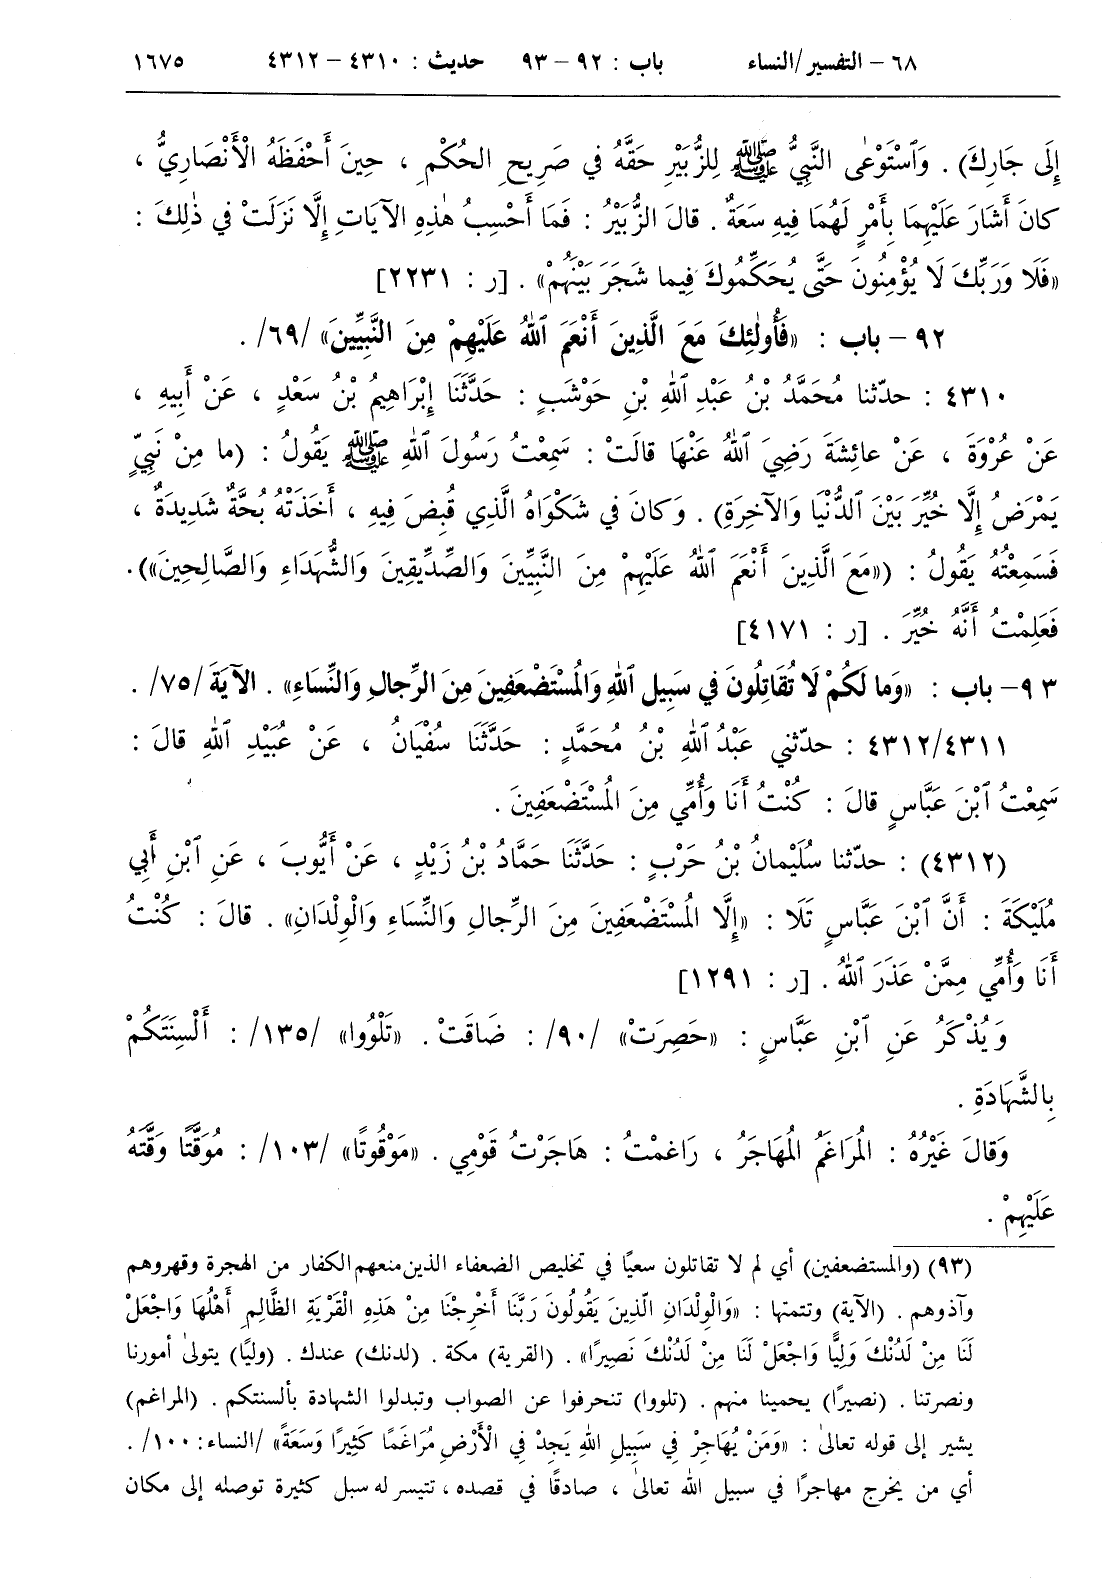 ٦٨ – التفسير/النساء باب : ٩٢ – ٩٣ حديث : ٤٣١٠ – ٤٣١٢ ١٦٧٥
إِلَى جَارِكَ) . وَٱسْتَوْعٰى النَّبِيُّ ﷺ لِلزُّبَيْرِ حَقَّهُ في صَرِيحِ الحُكْمِ ، حِينَ أَحْفَظَهُ الْأَنْصَارِيُّ ،
كانَ أَشَارَ عَلَيْهِمَا بِأَمْرٍ لَهُمَا فِيهِ سَعَةٌ . قالَ الزُّبَيْرُ : فَمَا أَحْسِبُ هٰذِهِ الآيَاتِ إِلَّا نَزَلَتْ في ذٰلِكَ :
«فَلَا وَرَبِّكَ لَا يُؤْمِنُونَ حَتَّى يُحَكِّمُوكَ فِيما شَجَرَ بَيْنَهُمْ» . [ر : ٢٢٣١]
٩٢ – باب : «فَأُولٰئِكَ مَعَ الَّذِينَ أَنْعَمَ ٱللهُ عَلَيْهِمْ مِنَ النَّبِيِّينَ» /٦٩/ .
٤٣١٠ : حدّثنا مُحَمَّدُ بْنُ عَبْدِ ٱللهِ بْنِ حَوْشَبٍ : حَدَّثَنَا إِبْرَاهِيمُ بْنُ سَعْدٍ ، عَنْ أَبِيهِ ،
عَنْ عُرْوَةَ ، عَنْ عائِشَةَ رَضِيَ ٱللهُ عَنْهَا قالَتْ : سَمِعْتُ رَسُولَ ٱللهِ ﷺ يَقُولُ : (ما مِنْ نَبِيٍّ
يَمْرَضُ إِلَّا خُيِّرَ بَيْنَ الدُّنْيَا وَالآخِرَةِ) . وَكانَ في شَكْوَاهُ الَّذِي قُبِضَ فِيهِ ، أَخَذَتْهُ بُحَّةٌ شَدِيدَةٌ ،
فَسَمِعْتُهُ يَقُولُ : («مَعَ الَّذِينَ أَنْعَمَ ٱللهُ عَلَيْهِمْ مِنَ النَّبِيِّينَ وَالصِّدِّيقِينَ وَالشُّهَدَاءِ وَالصَّالِحِينَ»).
فَعَلِمْتُ أَنَّهُ خُيِّرَ . [ر : ٤١٧١]
٩٣ – باب : «وَما لَكُمْ لَا تُقَاتِلُونَ في سَبِيلِ ٱللهِ وَالْمُسْتَضْعَفِينَ مِنَ الرِّجالِ وَالنِّسَاءِ» . الآيَةَ /٧٥/ .
٤٣١٢/٤٣١١ : حدّثني عَبْدُ ٱللهِ بْنُ مُحَمَّدٍ : حَدَّثَنَا سُفْيَانُ ، عَنْ عُبَيْدِ ٱللهِ قالَ :
سَمِعْتُ ٱبْنَ عَبَّاسٍ قالَ : كُنْتُ أَنَا وَأُمِّي مِنَ الْمُسْتَضْعَفِينَ .
(٤٣١٢) : حدّثنا سُلَيْمانُ بْنُ حَرْبٍ : حَدَّثَنَا حَمَّادُ بْنُ زَيْدٍ ، عَنْ أَيُّوبَ ، عَنِ ٱبْنِ أَبِي
مُلَيْكَةَ : أَنَّ ٱبْنَ عَبَّاسٍ تَلَا : «إِلَّا الْمُسْتَضْعَفِينَ مِنَ الرِّجالِ وَالنِّسَاءِ وَالْوِلْدَانِ» . قالَ : كُنْتُ
أَنَا وَأُمِّي مِمَّنْ عَذَرَ ٱللهُ . [ر : ١٢٩١]
وَيُذْكَرُ عَنِ ٱبْنِ عَبَّاسٍ : «حَصِرَتْ» /٩٠/ : ضَاقَتْ . «تَلْوُوا» /١٣٥/ : أَلْسِنَتَكُمْ
بِالشَّهَادَةِ .
وَقالَ غَيْرُهُ : الْمُرَاغَمُ الْمُهَاجَرُ ، رَاغَمْتُ : هَاجَرْتُ قَوْمِي . «مَوْقُوتًا» /١٠٣/ : مُوَقَّتًا وَقَّتَهُ
عَلَيْهِمْ .
(٩٣) (والمستضعفين) أي لم لا تقاتلون سعيًا في تخليص الضعفاء الذين منعهم الكفار من الهجرة وقهروهم
وآذوهم . (الآية) وتتمتها : «وَالْوِلْدَانِ الَّذِينَ يَقُولُونَ رَبَّنَا أَخْرِجْنَا مِنْ هَذِهِ الْقَرْيَةِ الظَّالِمِ أَهْلُهَا وَاجْعَلْ
لَنَا مِنْ لَدُنْكَ وَلِيًّا وَاجْعَلْ لَنَا مِنْ لَدُنْكَ نَصِيرًا» . (القرية) مكة . (لدنك) عندك . (وليًا) يتولىٰ أمورنا
ونصرتنا . (نصيرًا) يحمينا منهم . (تلووا) تنحرفوا عن الصواب وتبدلوا الشهادة بألسنتكم . (المراغم)
يشير إلى قوله تعالىٰ : «وَمَنْ يُهَاجِرْ فِي سَبِيلِ اللهِ يَجِدْ فِي الْأَرْضِ مُرَاغَمًا كَثِيرًا وَسَعَةً» /النساء: ١٠٠/ .
أي من يخرج مهاجرًا في سبيل الله تعالىٰ ، صادقًا في قصده ، تتيسر له سبل كثيرة توصله إلى مكان